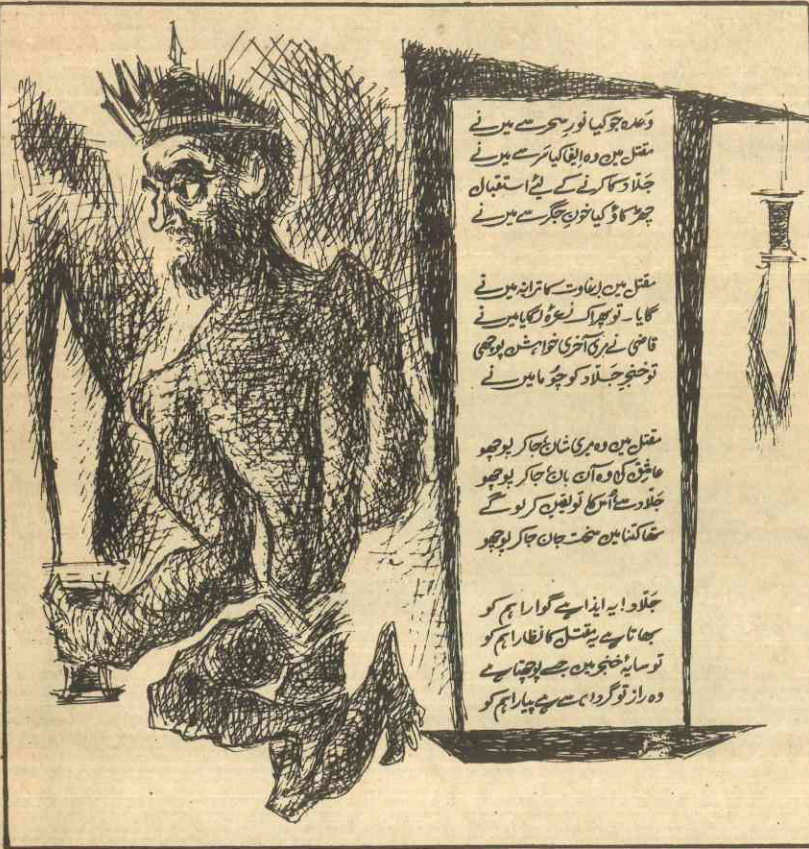 وعدہ جو کیا نورِ سحر سے میں نے
مقتل میں وہ ایفا کیا سر سے میں نے
جلّاد کا کرنے کے لئے استقبال
چھڑکاؤ کیا خونِ جگر سے میں نے
مقتل میں بغاوت کا ترانہ میں نے
گایا۔ تو پھر اک نعرہ لگایا میں نے
قاضی نے مری آخری خواہش پوچھی
تو خنجرِ جلّاد کو چُوما میں نے
مقتل میں وہ مری شان جا کر پوچھو
عاشق کی وہ آن بان جا کر پوچھو
جلّاد سے اُس کا تو یقین کر لو گے
تھا کتنا میں سخت جان جا کر پوچھو
جلّاد! یہ ایذا ہے گوارا ہم کو
بھاتا ہے یہ مقتل کا نظارا ہم کو
تو سایۂ خنجر میں جسے پوچھتا ہے
وہ راز تو گردن سے ہے پیارا ہم کو